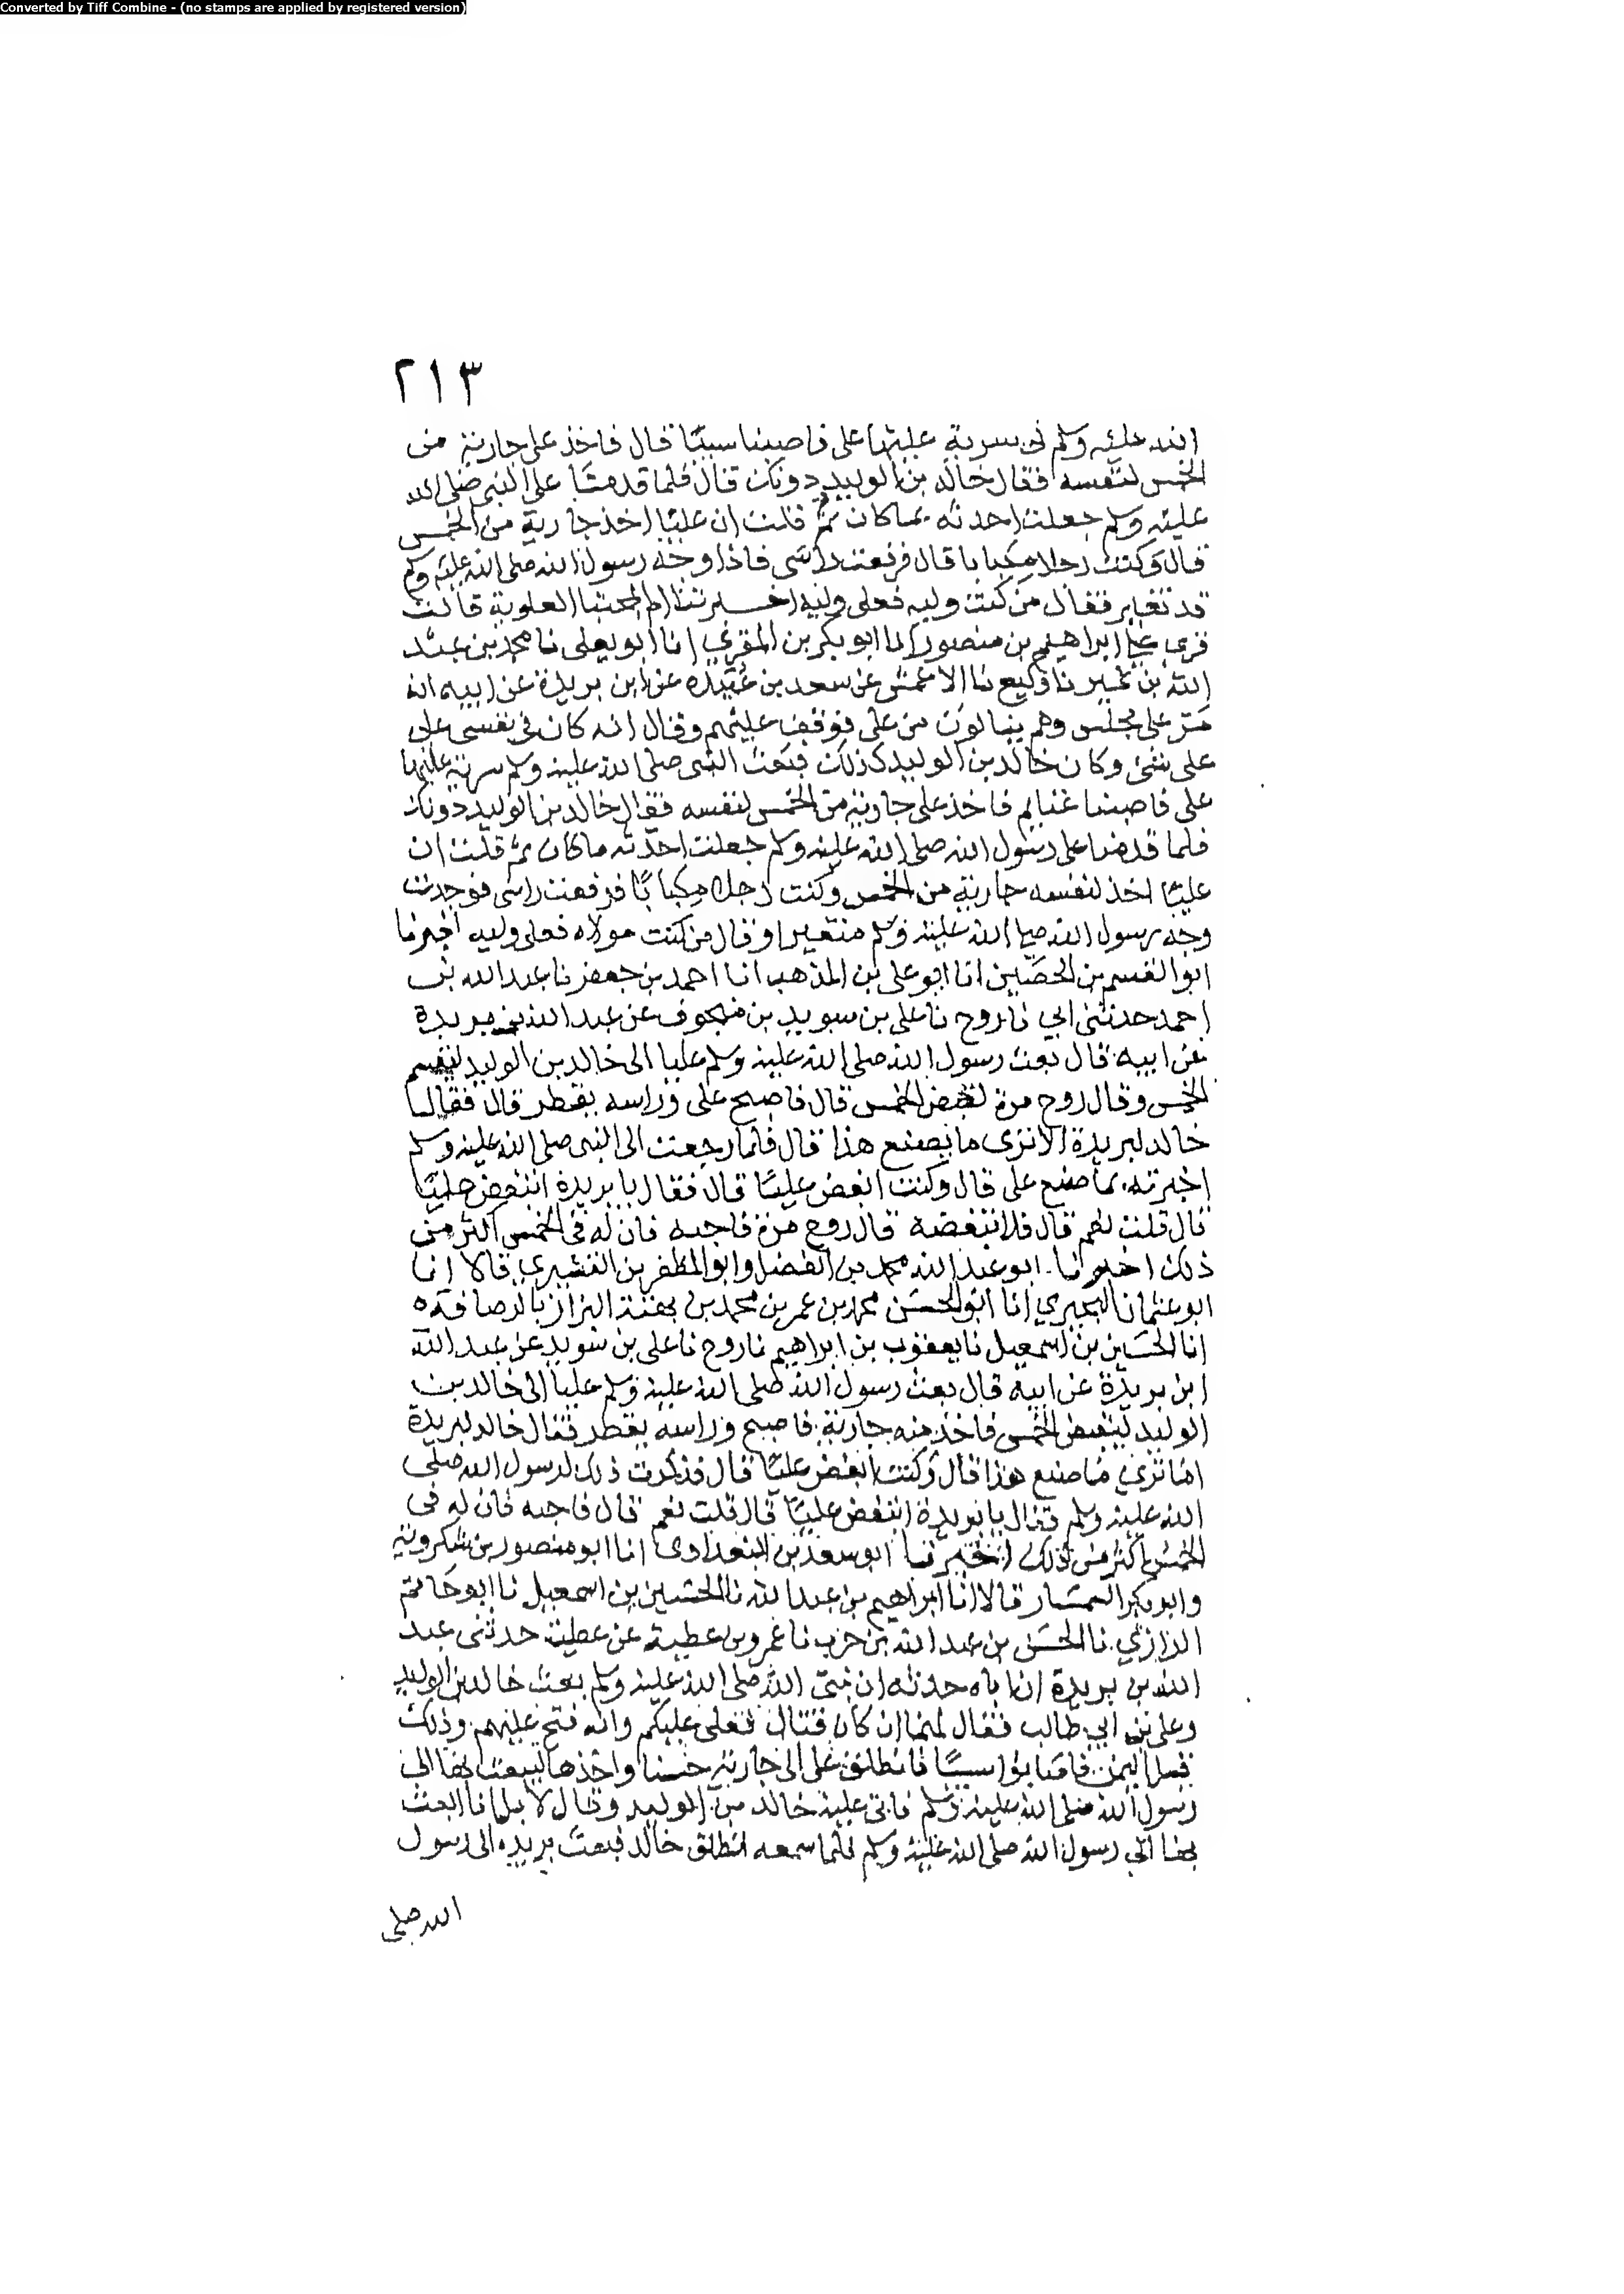 Converted by Tiff Combine - (no stamps are applied by registered version)
٢١٣
الله عليه وسلم في سرية عليها على فاصبنا سبيا قال فاخذ على جارية من
الخمس لنفسه فقال خالد بن الوليد دونك قال فلما قدمنا على النبي صلى الله
عليه وسلم جعلت احدثه بما كان ثم قلت ان عليا اخذ جارية من الخمس
قال وكنت رجلا مكبابا قال فرفعت راسي فاذا وجه رسول الله صلى الله عليه وسلم
قد تغير فقال من كنت وليه فعلي وليه اخبرتنا ام المجتبا العلوية قالت
قرى على ابراهيم بن منصور انا ابو بكر بن المقري انا ابو يعلى نا محمد بن عبد
الله بن نمير نا وكيع نا الاعمش عن سعد بن عبيدة عن ابن بريدة عن ابيه انه
مر على مجلس وهم ينالون من على فوقف عليهم وقال انه كان في نفسي على
على شئ وكان خالد بن الوليد كذلك فبعث النبي صلى الله عليه وسلم سرية عليها
على فاصبنا غنايم فاخذ على جارية من الخمس لنفسه فقال خالد بن الوليد دونك
فلما قدمنا على رسول الله صلى الله عليه وسلم جعلت احدثه ما كان ثم قلت ان
عليا اخذ لنفسه جارية من الخمس وكنت رجلا مكبابا فرفعت راسي فوجدت
وجه رسول الله صلى الله عليه وسلم متغيرا وقال من كنت مولاه فعلي وليه اخبرنا
ابو القسم بن الحصين انا ابو على بن المذهب انا احمد بن جعفر نا عبد الله بن
احمد حدثني ابي نا روح نا على بن سويد بن منجوف عن عبد الله بن بريدة
عن ابيه قال بعث رسول الله صلى الله عليه وسلم عليا الى خالد بن الوليد ليقسم
الخمس وقال روح مرة لقبض الخمس قال فاصبح على وراسه يقطر قال فقال
خالد لبريدة الا ترى ما يصنع هذا قال فلما رجعت الى النبي صلى الله عليه وسلم
اخبرته بما صنع على قال وكنت ابغض عليا قال فقال يا بريدة اتبغض عليا
قال قلت نعم قال فلا تبغضه قال روح مرة فاحبه فان له في الخمس اكثر من
ذلك اخبرنا ابو عبد الله محمد بن الفضل وابو المظفر بن القشيري قالا انا
ابو عثمان البحيري انا ابو الحسن محمد بن عمر بن محمد بن بهتة البزاز بالرصافة
انا الحسين بن اسمعيل نا يعقوب بن ابراهيم نا روح نا على بن سويد عن عبد الله
ابن بريدة عن ابيه قال بعث رسول الله صلى الله عليه وسلم عليا الى خالد بن
الوليد ليقبض الخمس فاخذ منه جارية فاصبح وراسه يقطر فقال خالد لبريدة
اما ترى ما صنع هذا قال وكنت ابغض عليا قال فذكرت ذلك لرسول الله صلى
الله عليه وسلم فقال يا بريدة اتبغض عليا قال قلت نعم قال فاحبه فان له في
الخمس اكثر من ذلك اخبرنا ابو سعد بن البغدادى انا ابو منصور بن شكرويه
وابو بكر السمسار قالا انا ابراهيم بن عبد الله نا الحسين بن اسمعيل نا ابو حاتم
الرازي نا الحسن بن عبد الله بن حرب نا عمرو بن عطية عن عطية حدثني عبد
الله بن بريدة ان اباه حدثه ان نبي الله صلى الله عليه وسلم بعث خالد بن الوليد
وعلى بن ابي طالب فقال لهما ان كان قتال فعلى عليكم وانه فتح عليهم وذلك
قبل اليمن فاصابوا سبيا فانطلق على الى جارية حسنا واخذها ليبعث بها الى
رسول الله صلى الله عليه وسلم فاتى عليه خالد بن الوليد وقال لا بل انا ابعث
بها الى رسول الله صلى الله عليه وسلم فلما سمعه انطلق خالد فبعث بريدة الى رسول
الله صلى